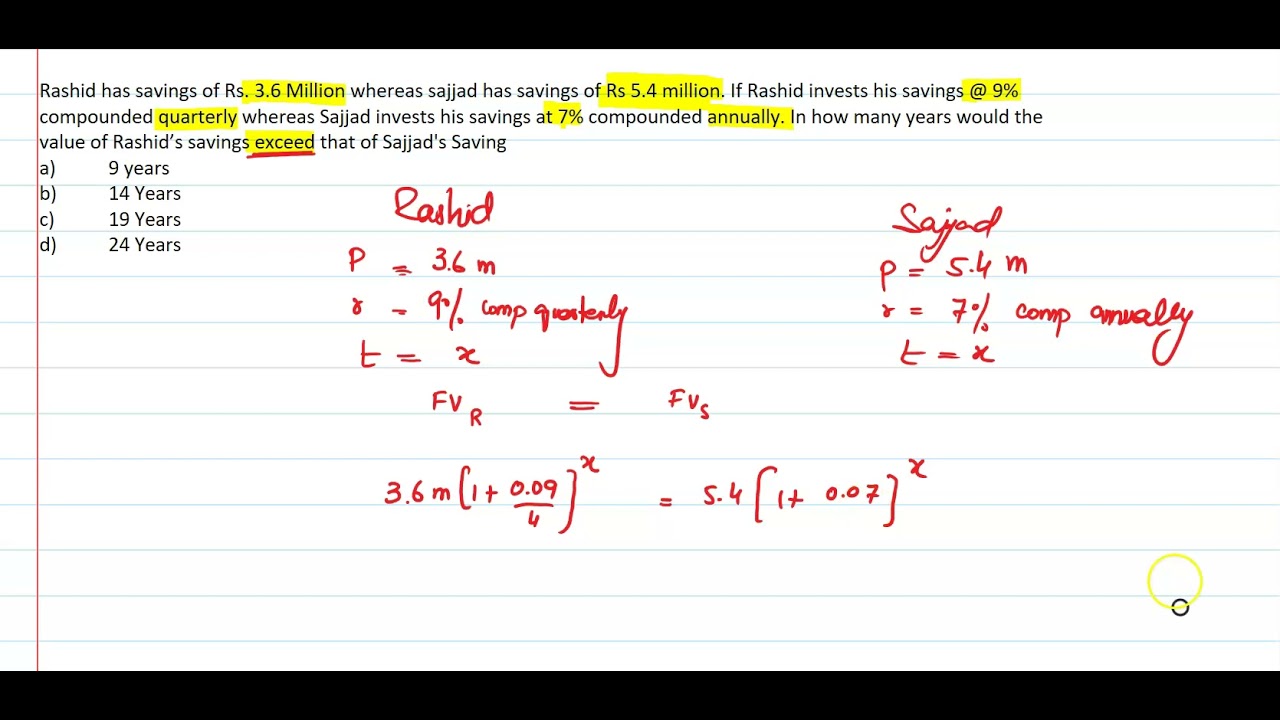 Rashid has savings of Rs. 3.6 Million whereas sajjad has savings of Rs 5.4 million. If Rashid invests his savings @ 9%
compounded quarterly whereas Sajjad invests his savings at 7% compounded annually. In how many years would the
value of Rashid’s savings exceed that of Sajjad's Saving
a) 9 years
b) 14 Years
c) 19 Years
d) 24 Years
Rashid Sajjad
P = 3.6 m P = 5.4 m
r = 9% comp quarterly r = 7% comp annually
t = x t = x
FV_R = FV_S
3.6 m [1 + 0.09/4]^x = 5.4 [1 + 0.07]^x